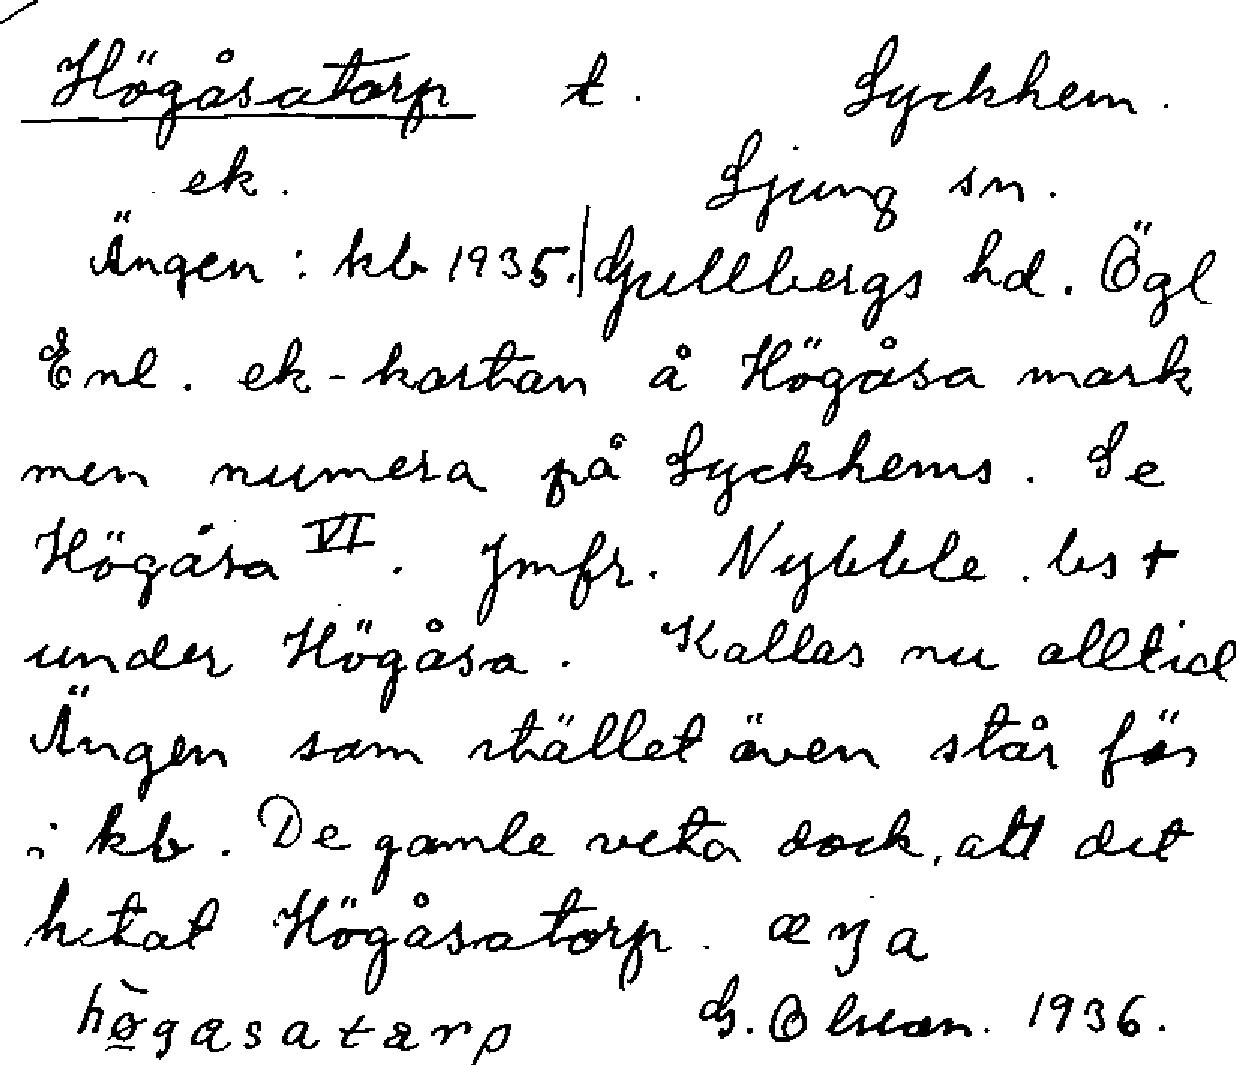 Högåsatorp t. Lyckhem.
ek. Ljung sn.
Ängen: kb 1935. Gullbergs hd. Ögl
Enl. ek-kartan å Högåsa mark
men numera på Lyckhems. Se
Högåsa VI. Jmfr. Nybble. bs +
under Högåsa. Kallas nu alltid
Ängen som stället även står för
i kb. De gamle veta dock, att det
hetat Högåsatorp. æŋa
G. Olsson. 1936.